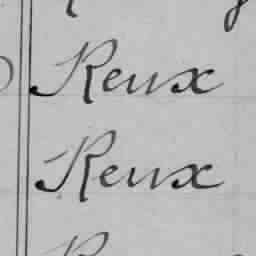 Reux
Reux